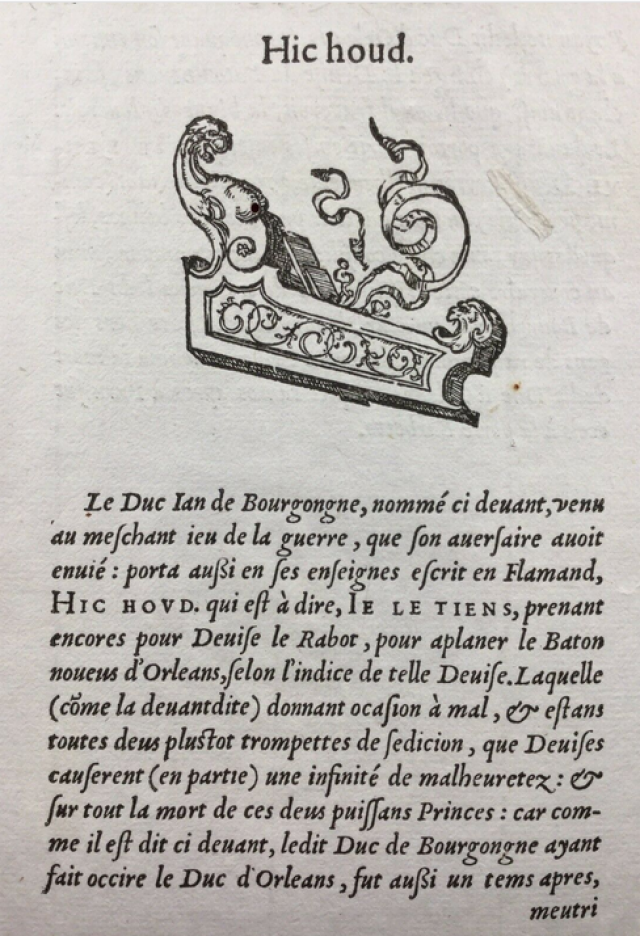 Hic houd.
Le Duc Ian de Bourgongne, nommé ci deuant, venu
au meſchant ieu de la guerre, que ſon auerſaire auoit
enuié : porta außi en ſes enſeignes eſcrit en Flamand,
HIC HOVD. qui eſt à dire, IE LE TIENS, prenant
encores pour Deuiſe le Rabot, pour aplaner le Baton
noueus d'Orleans, ſelon l'indice de telle Deuiſe. Laquelle
(cõme la deuantdite) donnant ocaſion à mal, & eſtans
toutes deus pluſtot trompettes de ſedicion, que Deuiſes
cauſerent (en partie) une infinité de malheuretez : &
ſur tout la mort de ces deus puiſſans Princes : car com-
me il eſt dit ci deuant, ledit Duc de Bourgongne ayant
fait occire le Duc d'Orleans, fut außi un tems apres,
meutri